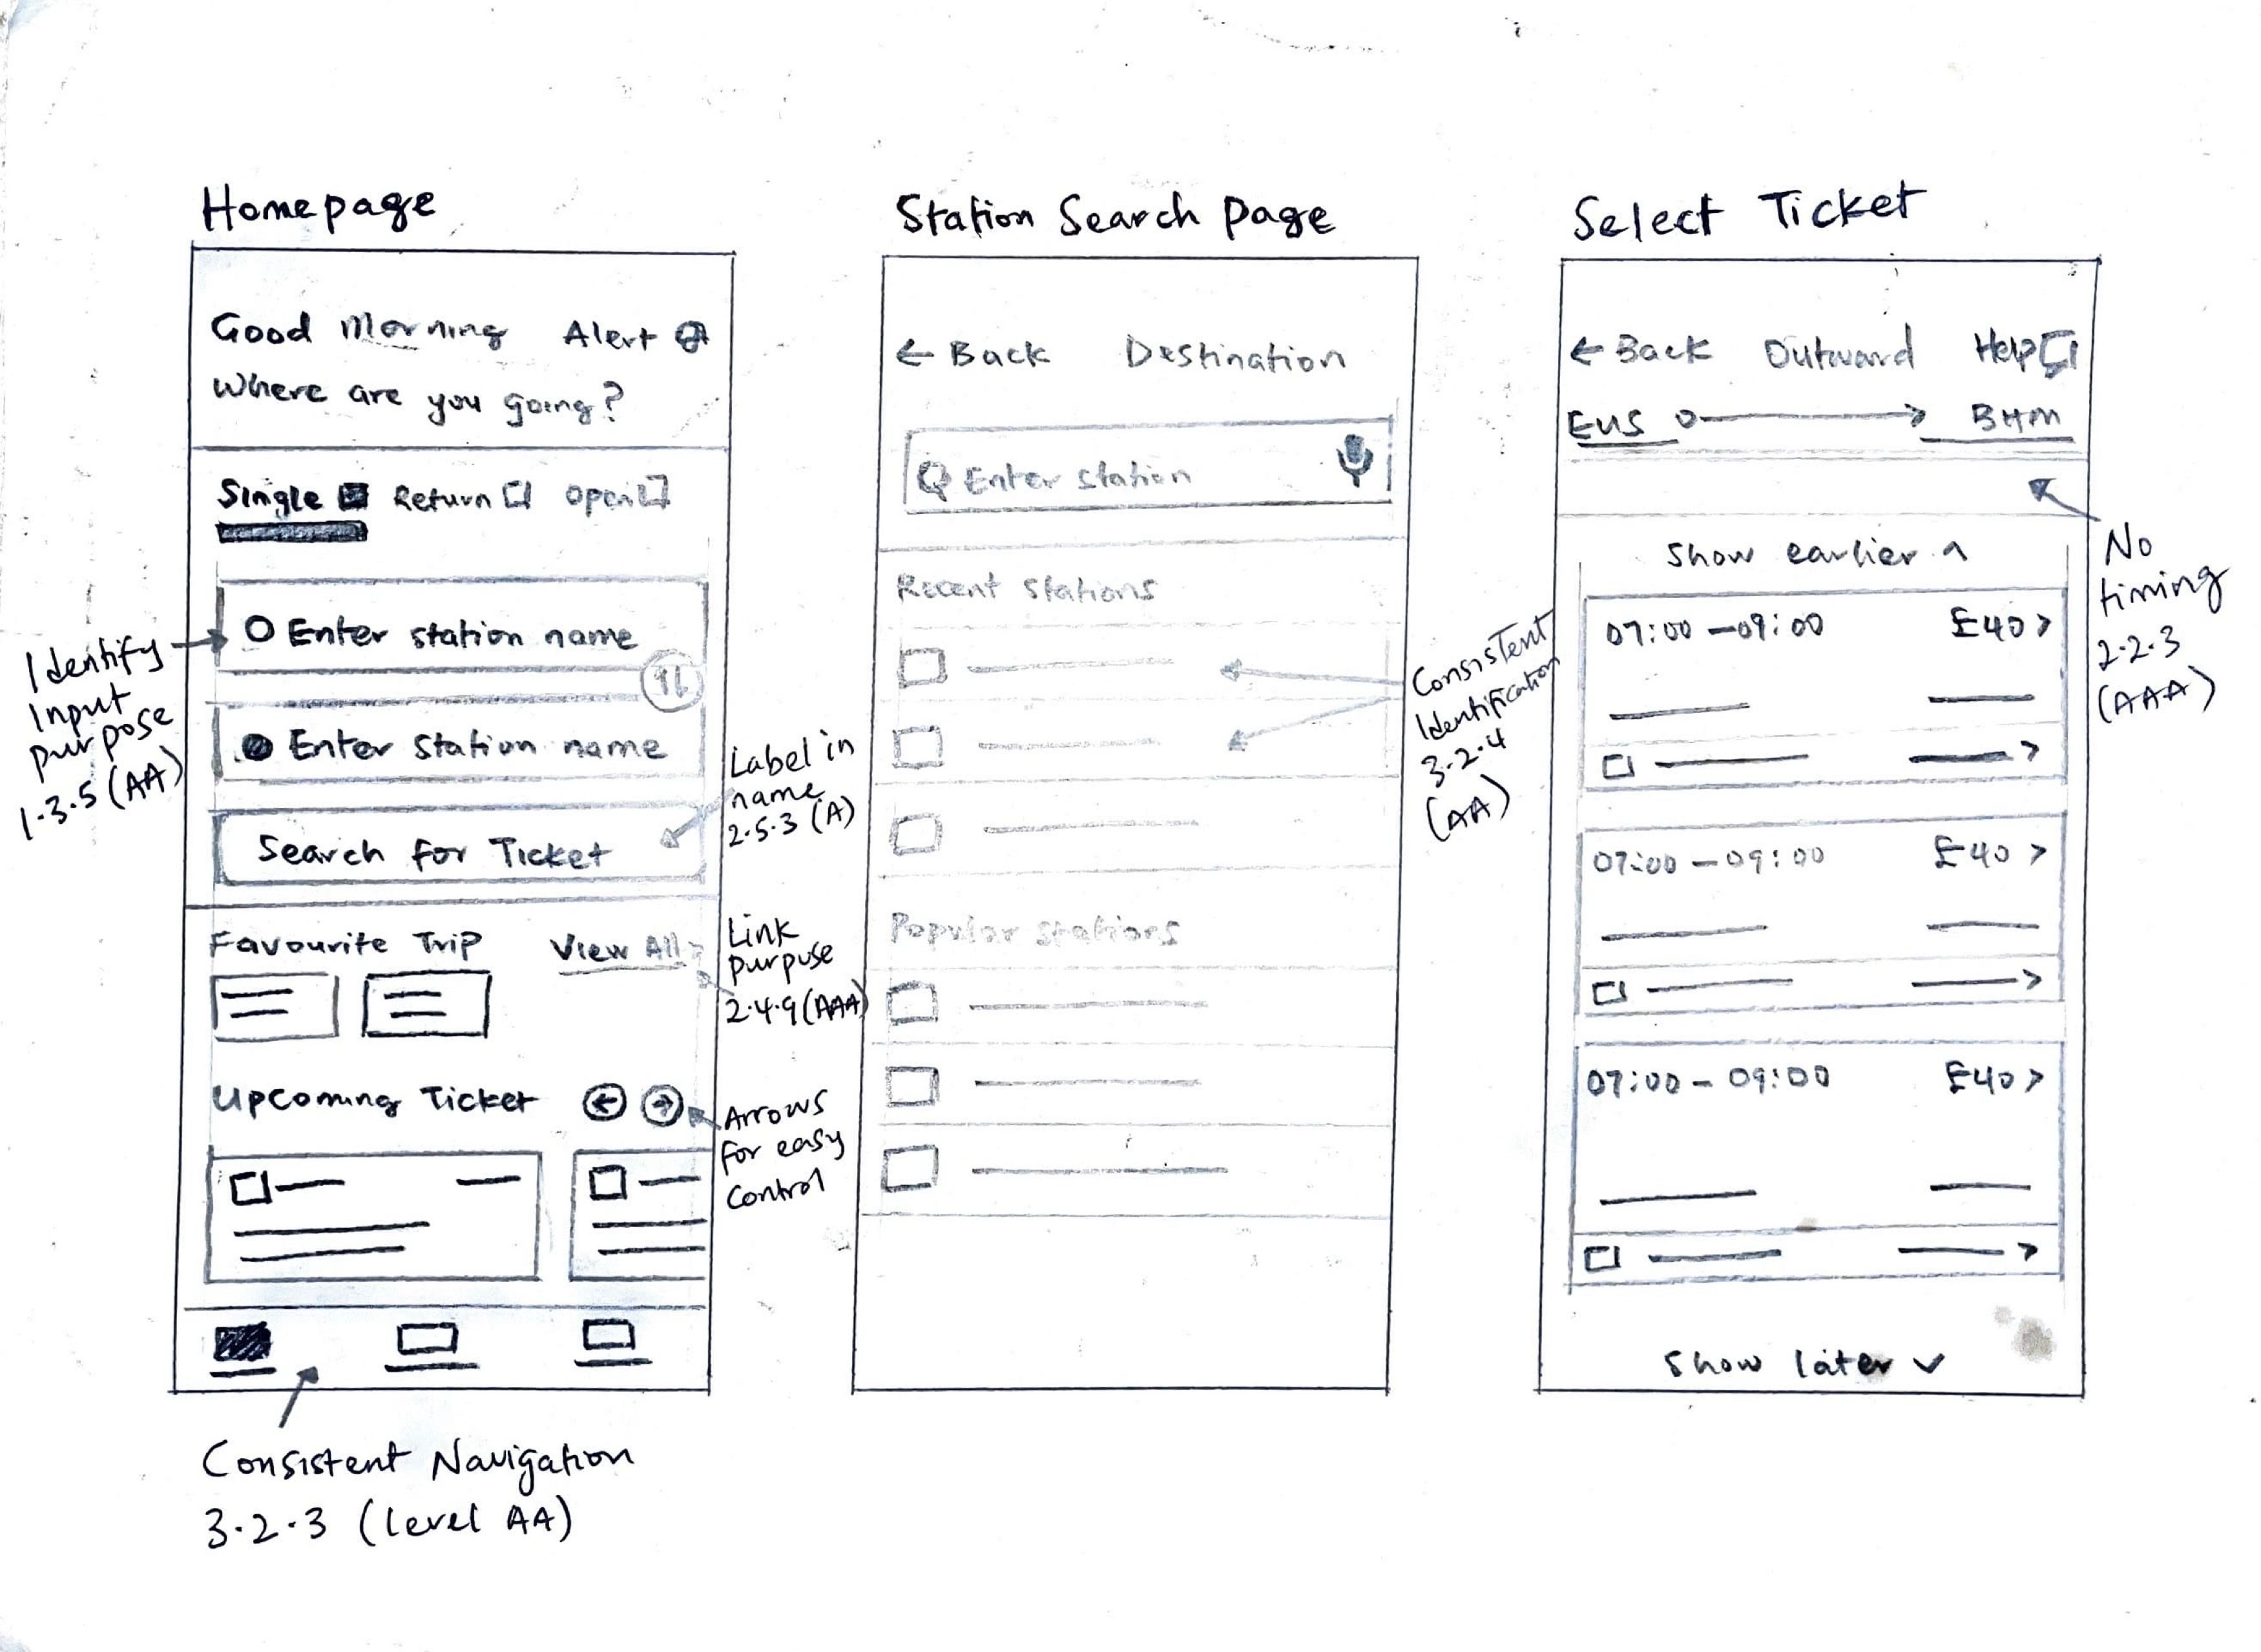 Homepage
Good Morning Alert
Where are you going?
Single Return Open
Enter station name
Enter Station name
Search for Ticket
Favourite Trip View All >
Upcoming Ticket ← →
Identify
Input
purpose
1.3.5 (AA)
Label in
name
2.5.3 (A)
Link
purpose
2.4.9 (AAA)
Arrows
for easy
Control
Consistent Navigation
3.2.3 (level AA)
Station Search page
← Back Destination
Enter station
Recent stations
Popular stations
Consistent
Identification
3.2.4
(AA)
Select Ticket
← Back Outward Help
EUS BHM
Show earlier ^
07:00 – 09:00 £40 >
07:00 – 09:00 £40 >
07:00 – 09:00 £40 >
Show later v
No
timing
2.2.3
(AAA)